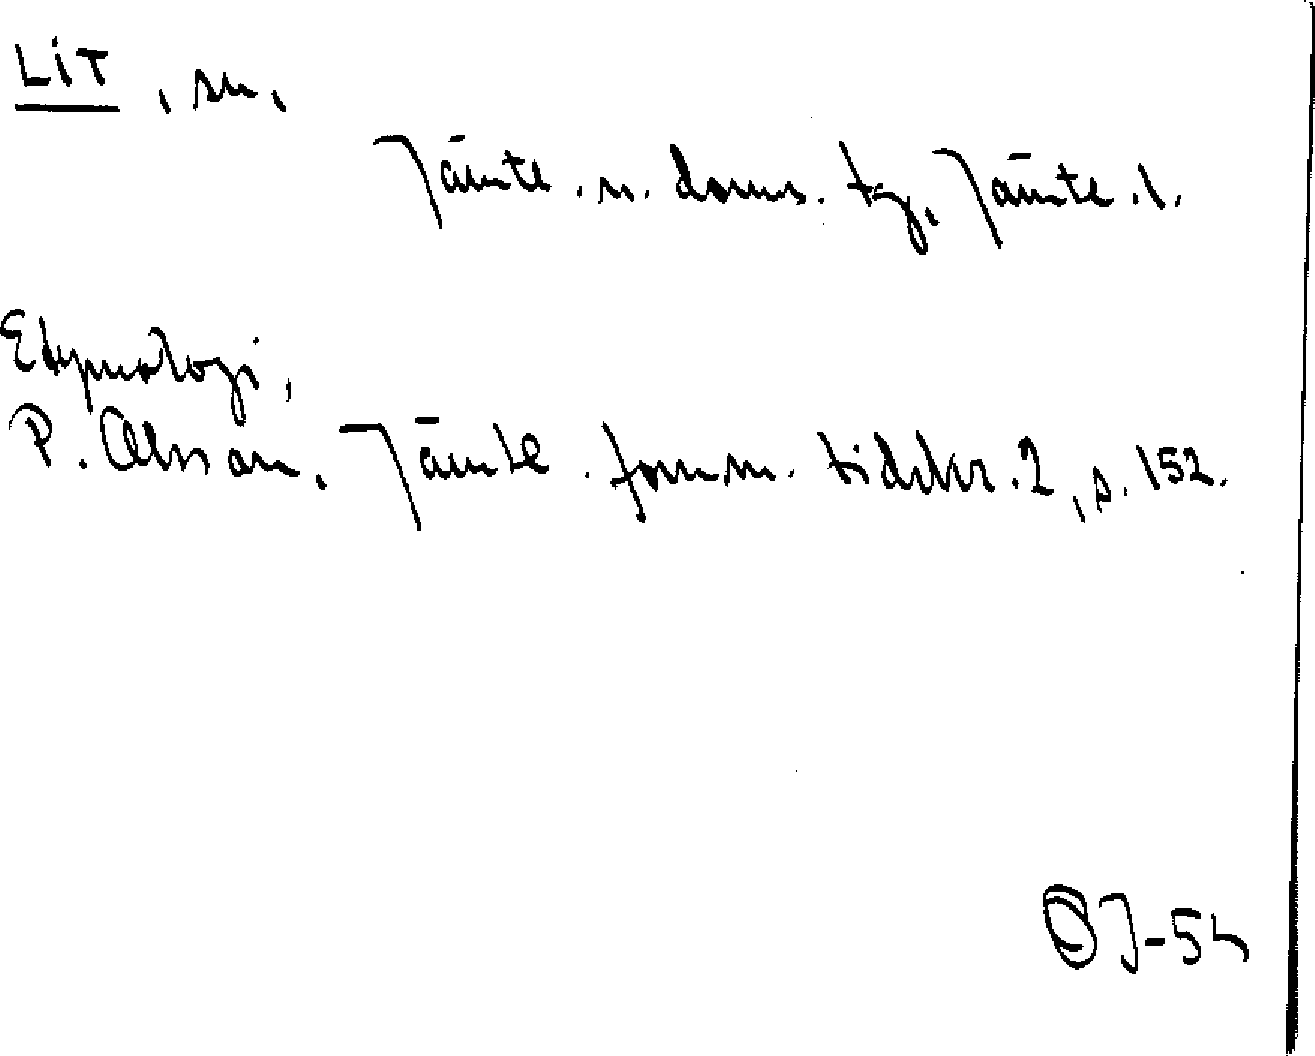 LIT, sn,
Jämtl. n. doms. tg, Jämtl. l.
Etymologi,
P. Olsson, Jämtl. fornm. tidskr. 2, s. 152.
ÖJ-54